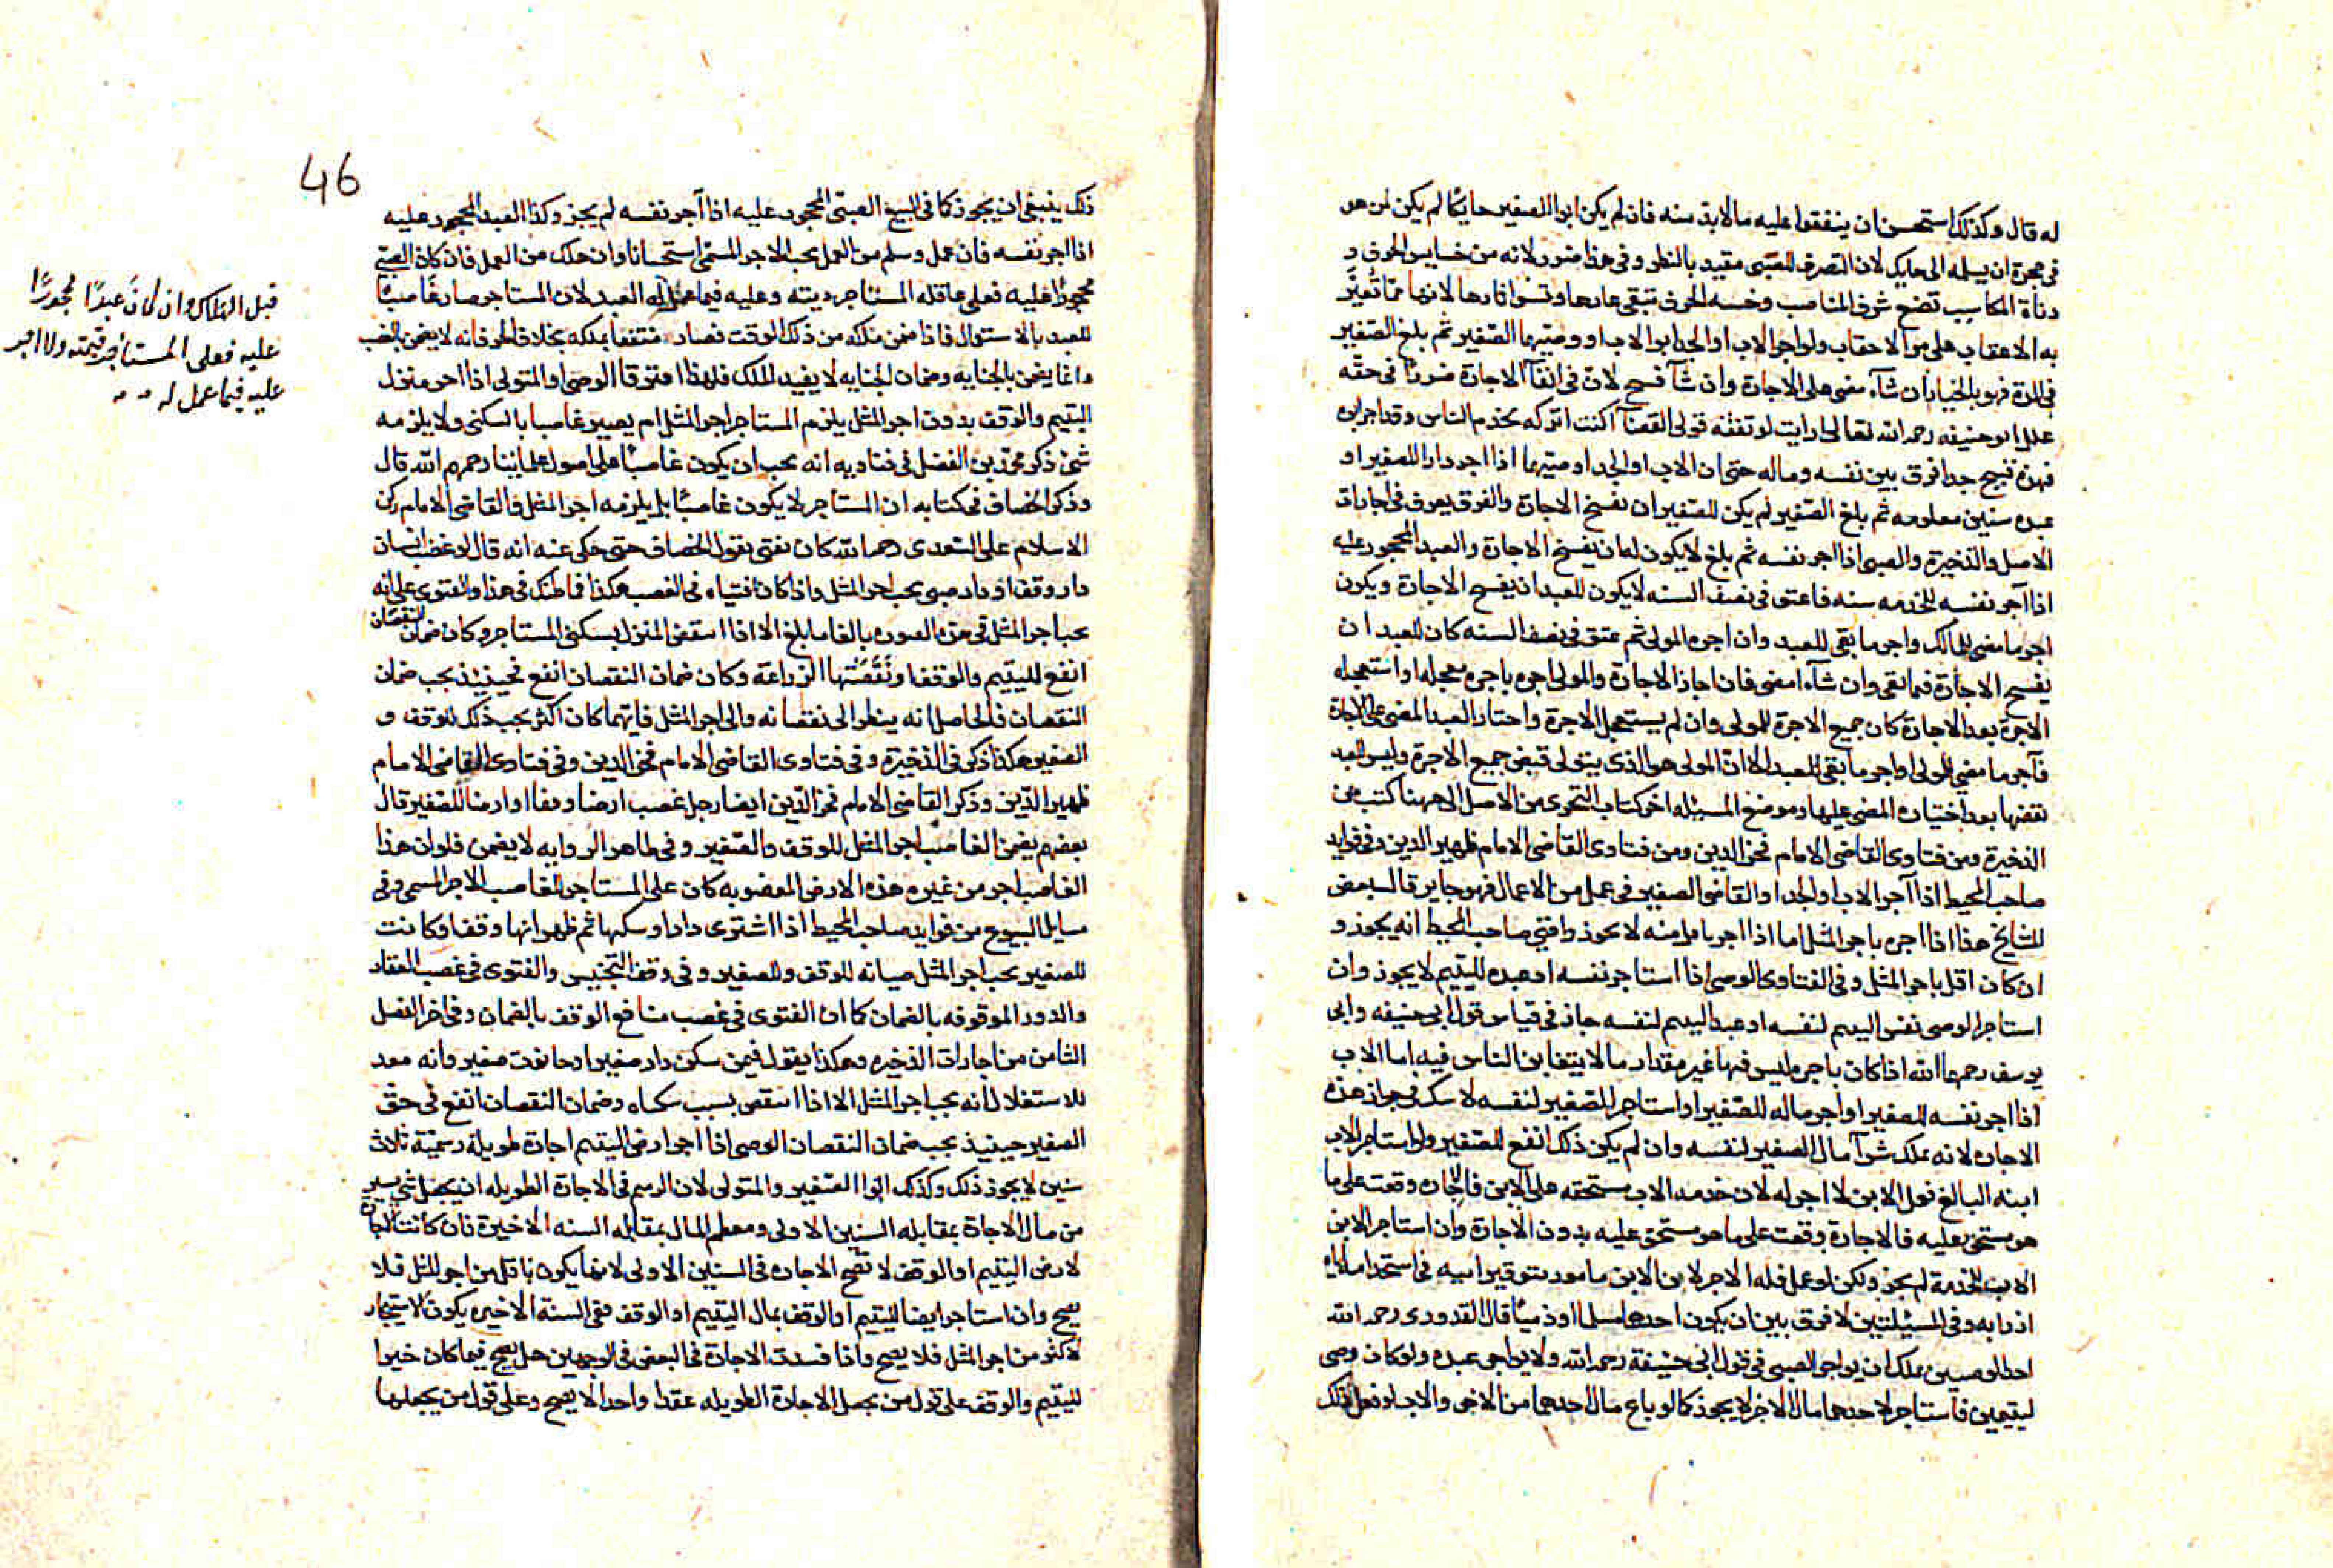 له قال وكذلك استحسن ان ينفقوا عليه مالابد منه فان لم يكن ابوا للصغير حايكا لم يكن لمن هو
فى حجرة ان يسلمه الى حايك لان التصرف للصبى مقيد بالنظر وفى هذا ضرر لانه من خسايس الحرف و
دناة المكاسب تضح شرف المناصب وخسه الحرف تبقى عارها وتسوا اثارها لانها مما تُعيَّر
به الاعقاب على مر الاحقاب ولو اجر الاب او الجد ابو الاب او وصيهما الصغير ثم بلغ الصغير
فى المدة فهو بالخيار ان شآء مضى على الاجارة وان شآ فسح لان فى ابقآ الاجارة ضررًا فى حقه
علل ابو حنيفه رحمه الله تعالى ارايت لو تفقه فولى القضآ اكنت اتركه يخدم الناس وقد اجر ابوه
فهذة قبيح جدا فرق بين نفسه وماله حتى ان الاب او الجد او وصيهما اذا اجر دارا للصغير او
عبده سنين معلومه ثم بلغ الصغير لم يكن للصغير ان يفسخ الاجارة والفرق يعرف فى اجارات
الاصل والذخيرة والصبى اذا اجر نفسه ثم بلغ لا يكون له ان يفسخ الاجارة والعبد المحجور عليه
اذا آجر نفسه للخدمه سنه فاعتق فى نصف السنه لا يكون للعبد ان يفسح الاجارة ويكون
اجر ما مضى للمالك واجر ما بقى للعبد وان اجره المولى ثم عتق فى نصف السنه كان للعبد ان
يفسح الاجارة فيما بقى وان شآء امضى فان اجاز الاجارة والمولى اجره باجره معجله او استعجله
الاجرة بعد الاجارة كان جميع الاجرة للمولى وان لم يستعجل الاجرة واختار العبد المضى على الاجارة
فآجر ما مضى للمولى واجر ما بقى للعبد الا ان المولى هو الذى يتولى قبض جميع الاجرة وليس للعبد
نقضها بعد اختياره المضى عليها وموضع المسئله اخر كتاب التحرى من الاصل الى ههنا كتب من
الذخيرة ومن فتاوى القاضى الامام فخر الدين ومن فتاوى القاضى الامام ظهير الدين وفى فوايد
صاحب المحيط اذا آجر الاب او الجد او القاضى الصغير فى عمل من الاعمال فهو جايز قال بعض
المشايخ هذا اذا اجره باجر المثل اما اذا اجر باقل منه لا يجوز وافتى صاحب المحيط انه يجوز و
ان كان اقل باجر المثل وفى الفتاوى الوصى اذا استاجر نفسه او عبده لليتيم لا يجوز وان
استاجر الوصى نفس اليتيم لنفسه او عبد اليتيم لنفسه جاز فى قياس قول ابى حنيفه وابى
يوسف رحمهما الله اذا كان باجره ليس فيها غير مقدار مالا يتغابن الناس فيه اما الاب
اذا اجر نفسه للصغير او آجر ماله للصغير او استاجر الصغير لنفسه لا شك فى جواز هذه
الاجاره لانه يملك شرآ مال الصغير لنفسه وان لم يكن ذلك انفع للصغير ولو استاجر الاب
ابنه البالغ فعمل الابن لا اجر له لان خدمه الاب مستحقه على الابن فالاجاره وقعت على ما
هو مستحق عليه فالاجارة وقعت على ما هو مستحق عليه بدون الاجارة وان استاجر الابن
الاب للخدمة لم يجز ولكن لو عمل فله الاجر لان الابن مامور بتوقير ابيه فى استخدامه اياه
اذرا به وفى المسئلتين لا فرق بين ان يكون احدهما مسلما او ذميًا قال القدورى رحمه الله
احد الوصيين يملك ان يواجر الصبى فى قول ابى حنيفة رحمه الله ولا يواجر عبده ولو كان وصى
ليتيمين فاستاجر لاحدهما مال الاخر لا يجوز كما لو باع مال احدهما من الاخر والاب لو فعل ذلك
46
ذلك ينبغى ان يجوز كما فى البيع الصبى المحجور عليه اذا آجر نفسه لم يجز وكذا العبد المحجور عليه
اذا اجر نفسه فان عمل وسلم من العمل يجب الاجر المسمى استحسانا وان هلك من العمل فان كان الصبى
محجورًا عليه فعلى عاقله المستاجر ديته وعليه فيما عمل له العبد لان المستاجر صار غاصبًا
للعبد بالاستعمال فاذا ضمن ملكه من ذلك الوقت فصار منتفعا بملكه بخلاف الحر فانه لا يضمن بالغصب
وانما يضمن بالجنايه وضمان الجنايه لا يفيد الملك فلهذا افترقا الوصى او المتولى اذا اجر منزل
اليتيم والوقف بدون اجر المثل يلزم المستاجر اجر المثل ام يصير غاصبا بالسكنى ولا يلزمه
شى ذكر محمد بن الفضل فى فتاويه انه يجب ان يكون غاصبًا على اصول علمائنا رحمهم الله قال
وذكر الخصاف فى كتابه ان المستاجر لا يكون غاصبًا بل يلزمه اجر المثل والقاضى الامام ركن
الاسلام على السعدى رحمه الله كان يفتى بقول الخصاف حتى حكى عنه انه قال لو غصب انسان
دار وقف او دار صبى يجب اجر المثل واذا كان افتياه فى الغصب هكذا فما ظنك فى هذا والفتوى على انه
يجب اجر المثل فى هذه الصوره بالغا ما بلغ الا اذا انتقض المنزل بسكنى المستاجر وكان ضمان النقصان
انفع لليتيم والوقف او نَقَصَتْها الزراعة وكان ضمان النقصان انفع فحينئذ يجب ضمان
النقصان فالحاصل انه ينظر الى نقصانه والى اجر المثل فايهما كان اكثر يجب ذلك للوقف و
الصغير هكذا ذكر فى الذخيرة وفى فتاوى القاضى الامام فخر الدين وفى فتاوى القاضى الامام
ظهير الدين وذكر القاضى الامام فخر الدين ايضا رجل غصب ارضا وقفا او ارضا للصغير قال
بعضهم يضمن الغاصب اجر المثل للوقف والصغير وفى ظاهر الروايه لا يضمن فلو ان هذا
الغاصب اجر من غيره هذه الارض المغصوبه كان على المستاجر للغاصب الاجر المسمى وفى
مسايل البيوع من فوايد صاحب المحيط اذا اشترى دارا وسكنها ثم ظهر انها وقف او كانت
للصغير يجب اجر المثل صيانه للوقف وللصغير وفى وقف التجنيس والفتوى فى غصب العقار
والدور الموقوفه بالضمان كما ان الفتوى فى غصب منافع الوقف بالضمان وفى اخر الفصل
الثامن من اجارات الذخيره وهكذا يقول فيمن سكن دار صغير او حانوت صغير وانه معد
للاستغلال انه يجب اجر المثل الا اذا انتقص بسبب سكناه وضمان النقصان انفع فى حق
الصغير حينيذ يجب ضمان النقصان الوصى اذا اجر ارض اليتيم اجارة طويلة رسمية ثلاث
سنين لا يجوز ذلك وكذلك ابوا الصغير والمتولى لان الرسم فى الاجارة الطويله ان يجعل شى يسير
من مال الاجاة بمقابله السنين الاولى ومعظم المال بمقابله السنه الاخيرة فان كانت الاجارة
لارض اليتيم او الوقف لا تصح الاجاره فى السنين الاولى لانها يكون باقل من اجر المثل فلا
يصح وان استاجر ايضا لليتيم او الوقف بمال اليتيم او الوقف ففى السنة الاخير يكون الاستيجار
لاكثر من اجر المثل فلا يصح واذا فسدت الاجارة فى البعض فى الوجهين هل يصح فيما كان خيرا
لليتيم والوقف على قول من يجعل الاجارة الطويله عقدا واحدا لا يصح وعلى قول من يجعلها
قبل الهلاك وان كان عبدًا محجورًا
عليه فعلى المستأجر قيمته ولا اجر
عليه فيما عمل له